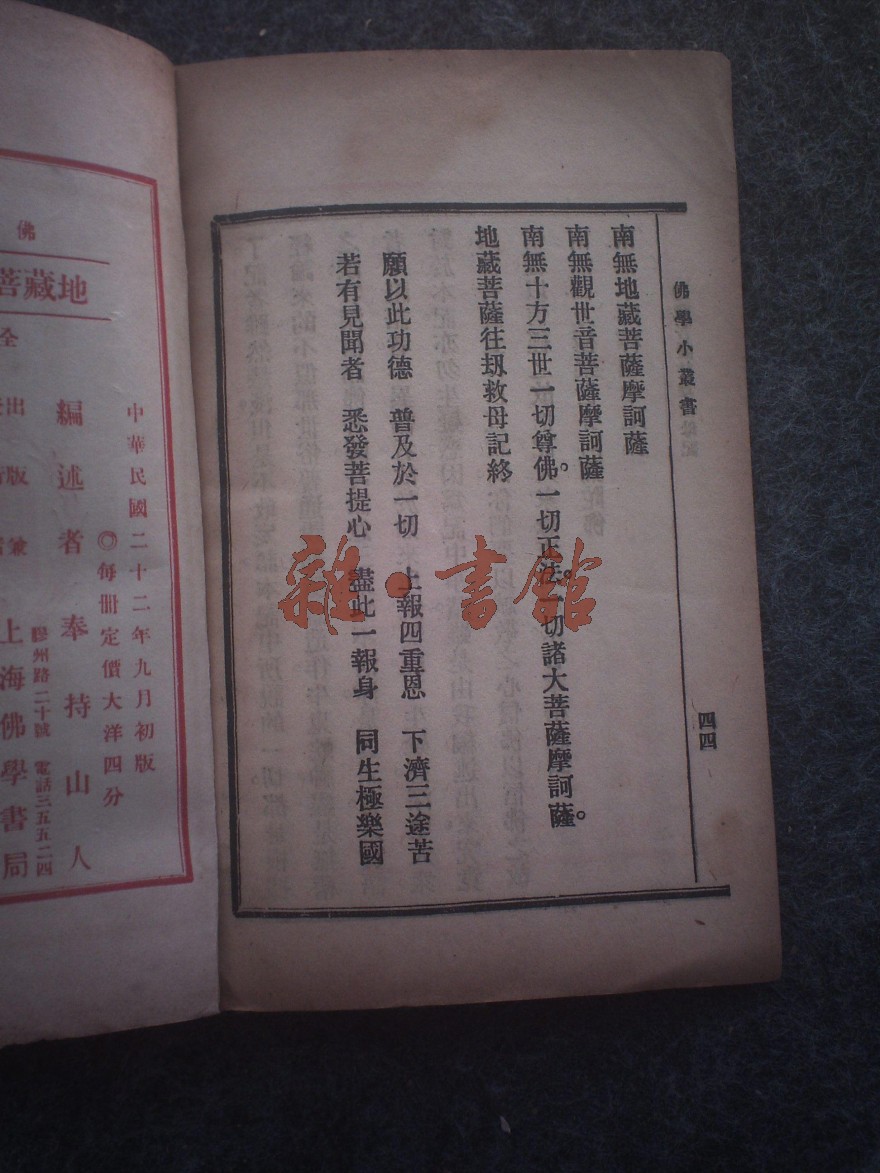 佛學小叢書
四四
南無地藏菩薩摩訶薩
南無觀世音菩薩摩訶薩
南無十方三世一切尊佛。一切正法。一切諸大菩薩摩訶薩。
地藏菩薩往劫救母記終
願以此功德 普及於一切 上報四重恩 下濟三途苦
若有見聞者 悉發菩提心 盡此一報身 同生極樂國
雜·書館
中華民國二十二年九月初版
◎每冊定價大洋四分
編述者奉持山人
膠州路二十號 電話三五五二四
上海佛學書局
出版兼
全
地藏菩
佛